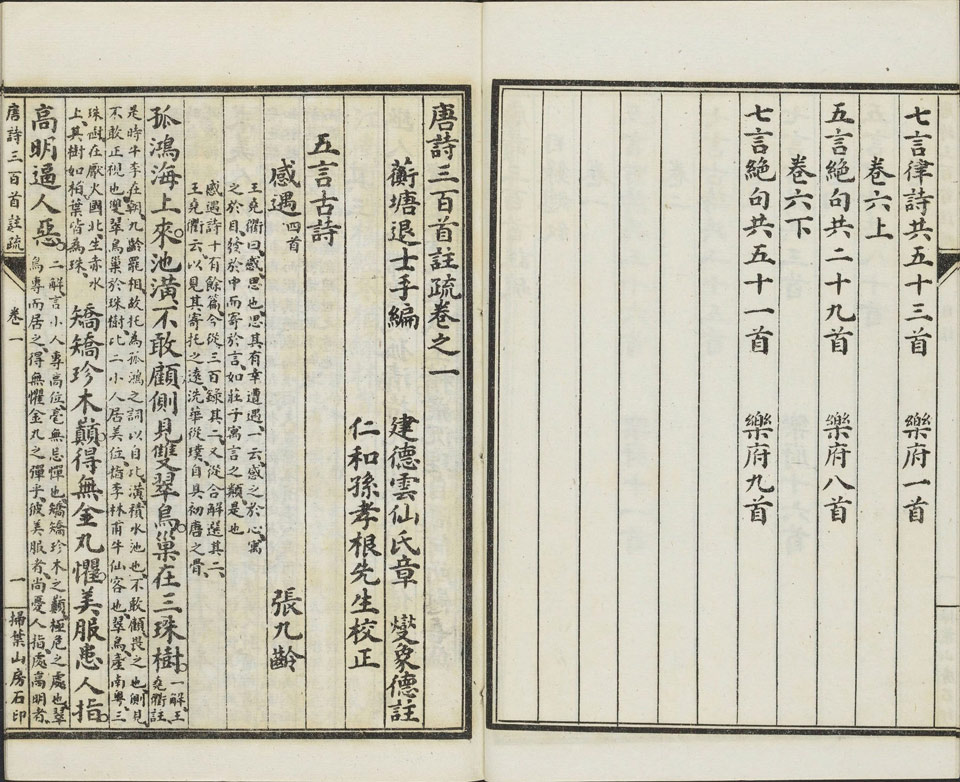 七言律詩共五十三首 樂府一首
卷六上
五言絕句共二十九首 樂府八首
卷六下
七言絕句共五十一首 樂府九首
唐詩三百首註疏卷之一
蘅塘退士手編 建德雲仙氏章 燮象德註
仁和孫孝根先生校正
五言古詩
感遇四首 張九齡
王堯衢曰感思也思其有幸遭遇一云感之於心寓
之於目發於中而寄於言如莊子寓言之類是也
感遇詩十百餘篇今從三百錄其二又從合解選其二
王堯衢云以見其寄托之遠洗華從璞自具初唐之骨
孤鴻海上來池潢不敢顧側見雙翠鳥巢在三珠樹一解王
堯衢註
是時牛李在朝九齡罷相故托為孤鴻之詞以自比潢積水池也不敢顧畏之也側見
不敢正視也雙翠鳥巢於珠樹比二小人居美位指李林甫牛仙客也翠鳥產南粵三
珠樹在厭火國北生赤水
上其樹如柏葉皆為珠 矯矯珍木巔得無金丸懼美服患人指
高明逼人惡二解言小人專高位毫無忌憚也矯矯珍木之巔極危之處也翠
鳥專而居之得無懼金丸之彈乎彼美服者尚憂人指處高明者
唐詩三百首註疏 卷一 一 掃葉山房石印